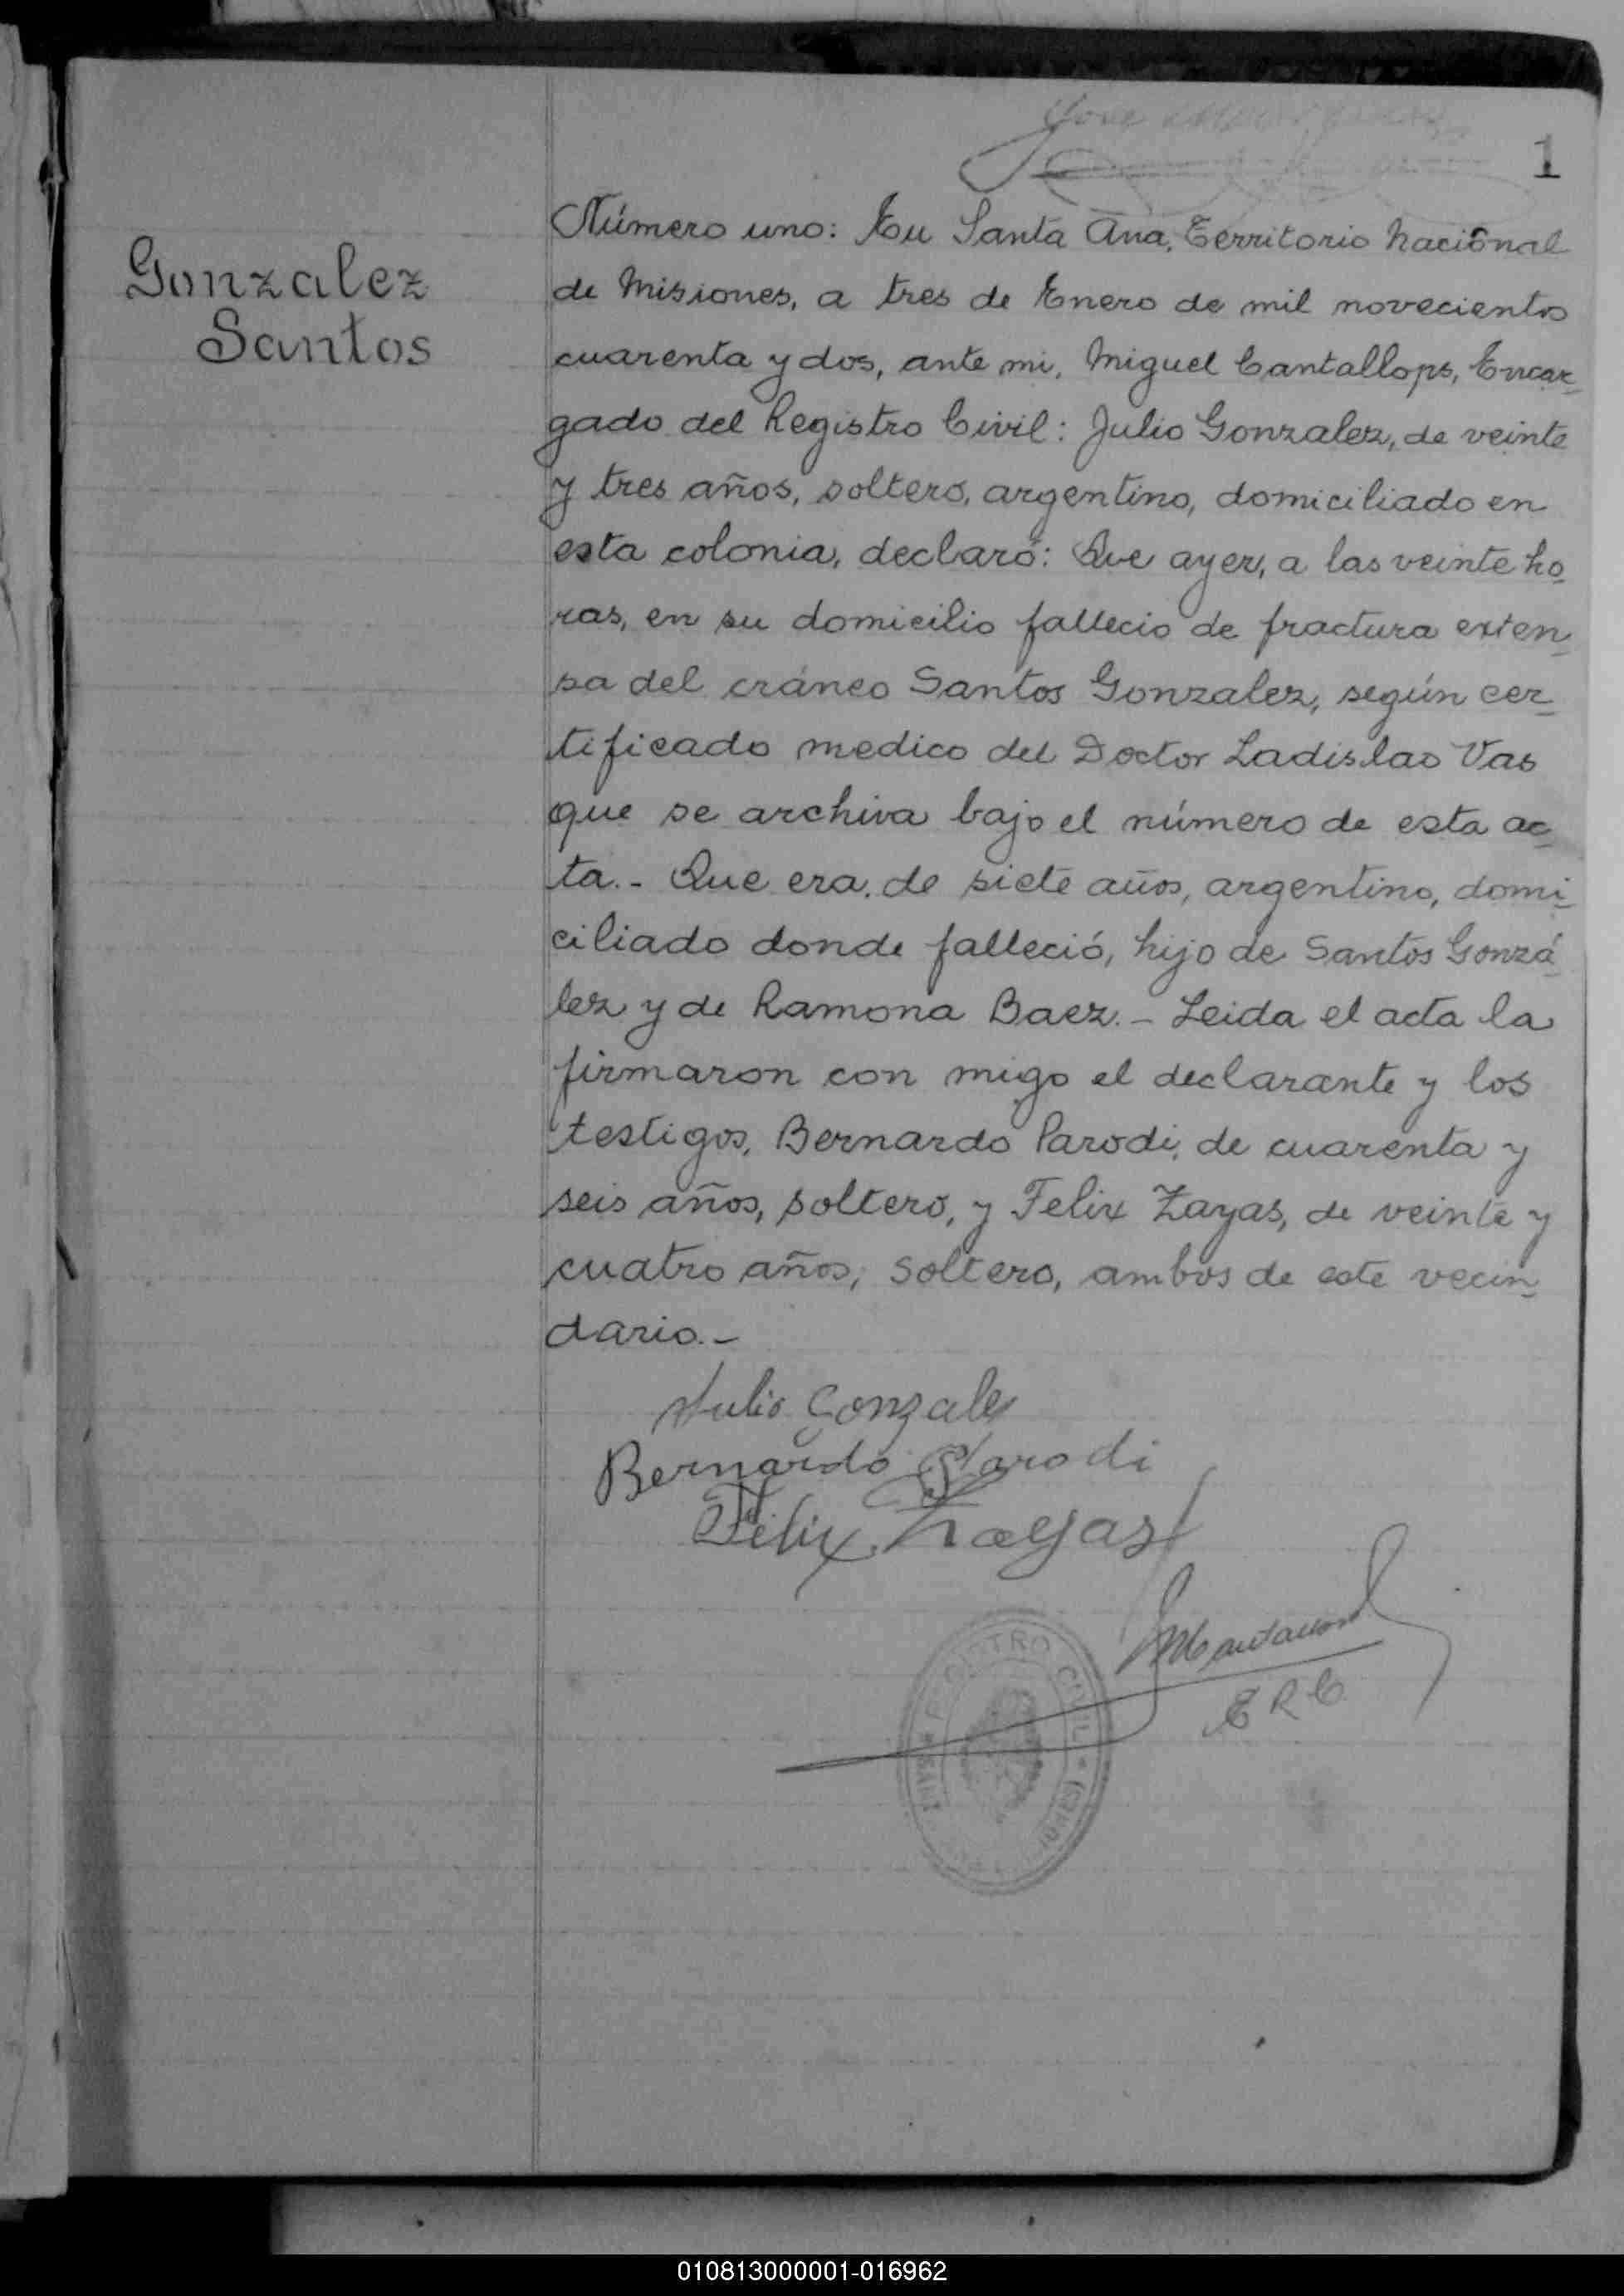 1
Gonzalez
Santos
Número uno: En Santa Ana, Territorio Nacional
de Misiones, a tres de Enero de mil novecientos
cuarenta y dos, ante mi, Miguel Cantallops, Encar-
gado del Registro Civil: Julio Gonzalez, de veinte
y tres años, soltero, argentino, domiciliado en
esta colonia, declaró: Que ayer, a las veinte ho-
ras, en su domicilio fallecio de fractura exten-
sa del cráneo Santos Gonzalez, según cer-
tificado medico del Doctor Ladislao Vas
que se archiva bajo el número de esta ac-
ta.- Que era de siete años, argentino, domi-
ciliado donde falleció, hijo de Santos Gonzá-
lez y de Ramona Baez.- Leida el acta la
firmaron con migo el declarante y los
testigos, Bernardo Parodi, de cuarenta y
seis años, soltero, y Felix Zayas, de veinte y
cuatro años, soltero, ambos de este vecin-
dario.-
Julio Gonzalez
Bernardo Parodi
Felix Zayas
E R C
REGISTRO CIVIL
010813000001-016962